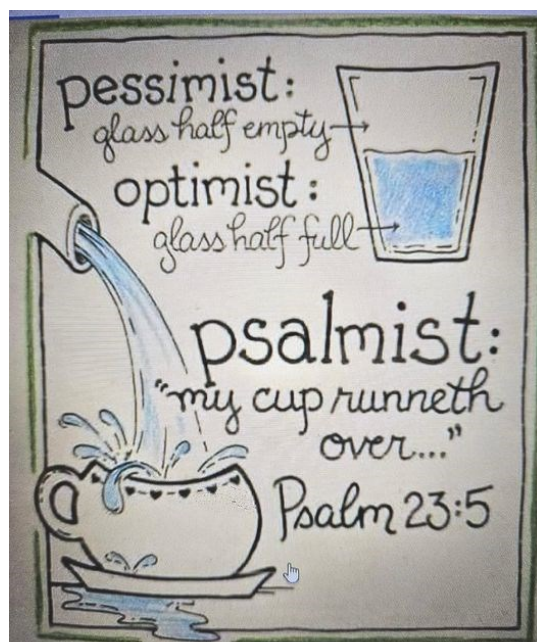 pessimist:
glass half empty
optimist:
glass half full
psalmist:
"my cup runneth
over..."
Psalm 23:5